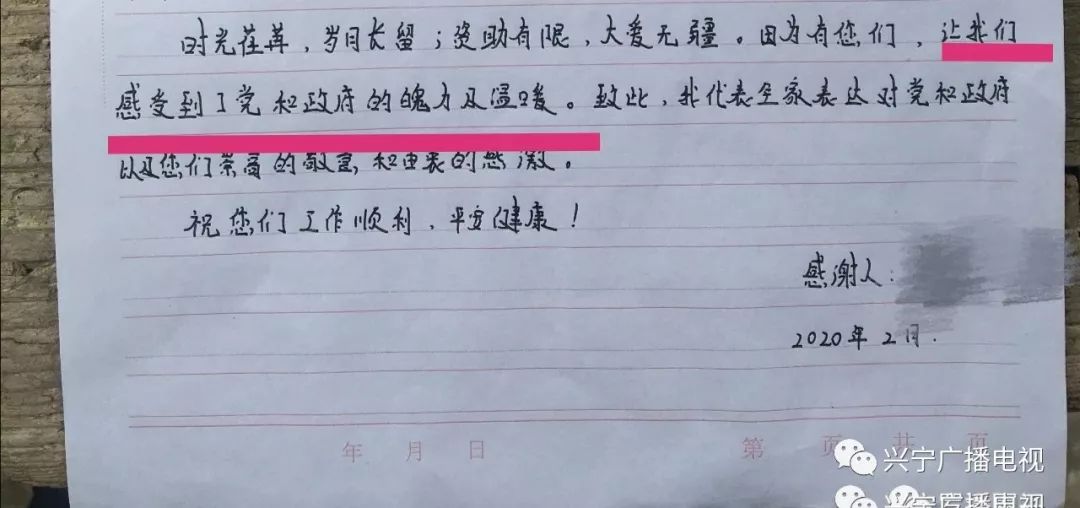 时光荏苒，岁月长留；资助有限，大爱无疆。因为有您们，让我们
感受到了党和政府的魄力及温暖。致此，我代表全家表达对党和政府
以及您们崇高的敬意和由衷的感激。
祝您们工作顺利、平安健康！
感谢人：
2020年2月.
年 月 日 第 页 共 页
兴宁广播电视
兴宁广播电视